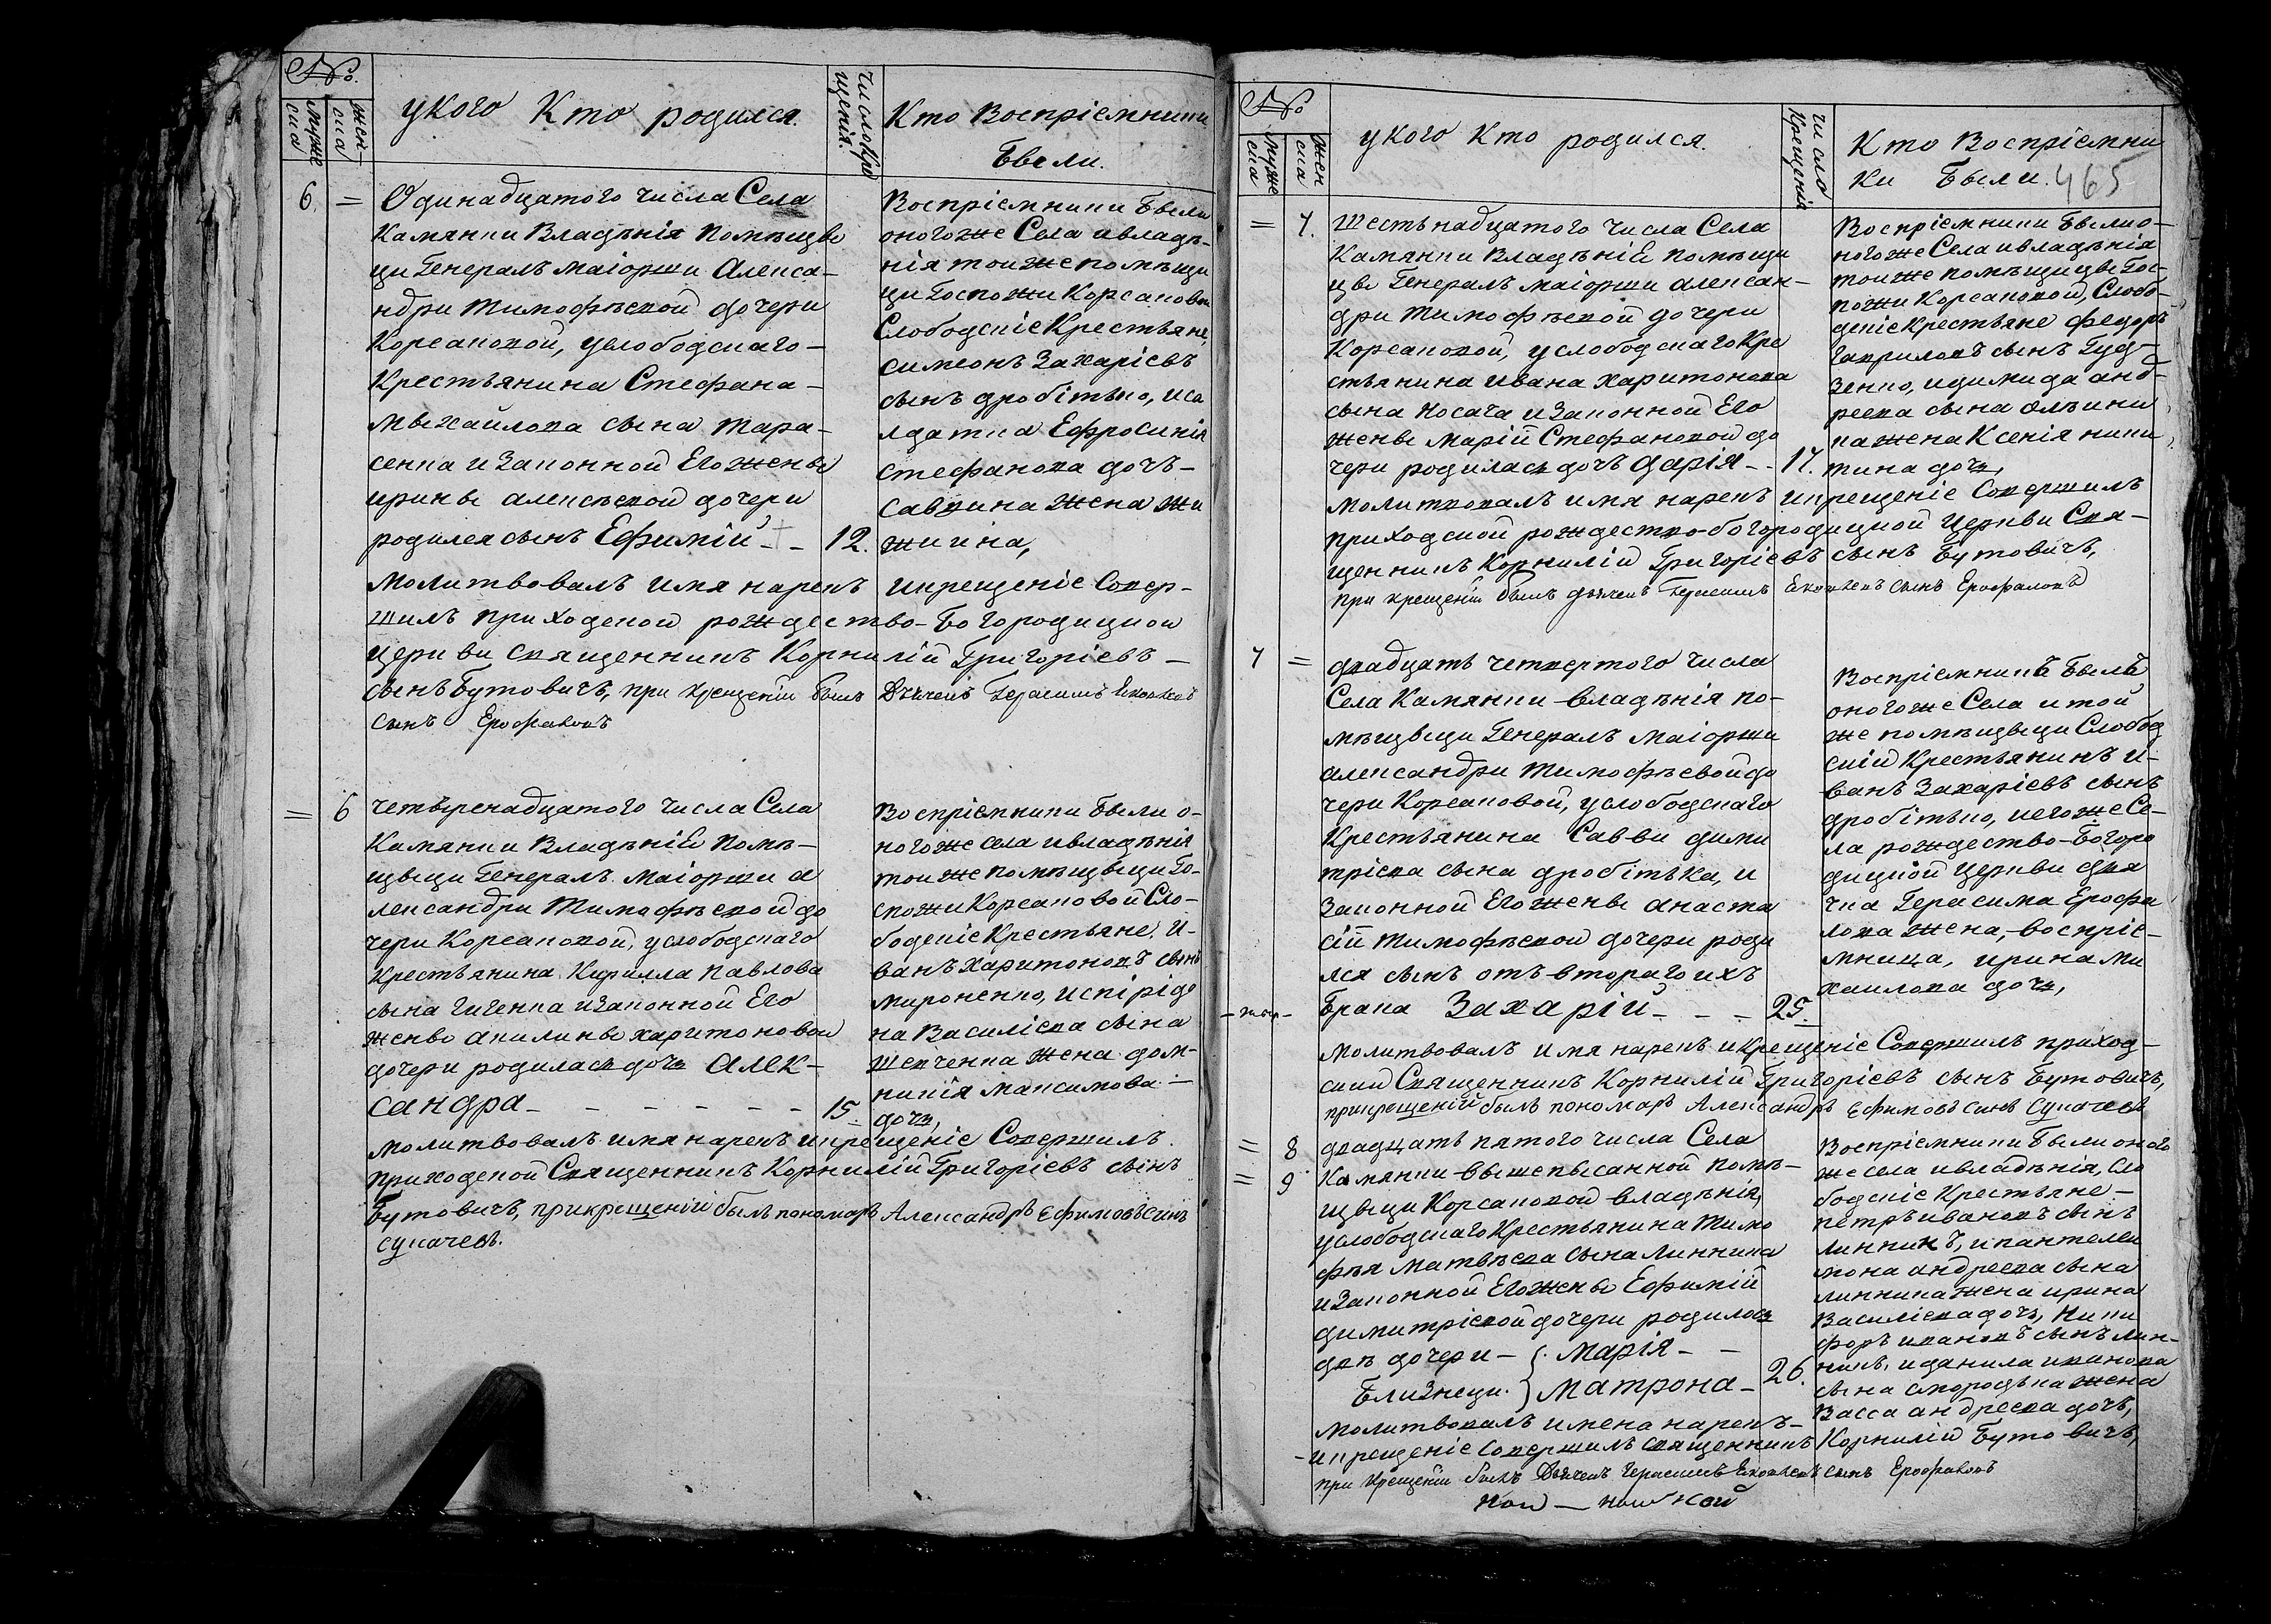 №.
муже
ска
жен—
ска
укого Кто родился.
Число кре
щенія.
Кто Воспріемники
Были.
6. =
Одинадцатого числа Села
Камянки Владѣнія помѣщи
ци Генералъ маіорши Алекса—
ндри Тимофѣевой дочери
Корсаковой, услободскаго—
Крестьянина Стефана—
мыхайлова сына Тара—
сенка и Законной Его жены
ирины алексѣевой дочери
родился сынъ Ефимій - - 12.
Воспріемники Были
оногоже Села ивладѣ-
нія тоиже помѣщи
ци Госпожи Корсаковой
Слободскіе Крестьяне,
симеонъ Захаріевъ
сынъ дробітько, и со
лдатка Ефросинія
стефанова дочъ—
саввина жена жи
жкина,
молитвовалъ имя нарекъ икрещеніе Совер-
шилъ приходской рождество-Богородицкой
церкви священникъ Корнилій Григоріевъ—
сынъ Бутовичъ, при крещеніи былъ Дьячекъ Герасимъ Яковлевъ
сынъ Ерофаловъ
= 6
четыренадцатого числа Села
Камянки Владѣній помѣ—
щыци Генералъ маіорши а
лександри Тимофѣевой до
чери Корсаковой, услободскаго
Крестьянина Кирилла Павлова
сына гиченка изаконной Его
жены акилины харитоновой
дочери родиласъ дочъ Алек-
сандра - - - - - - 15.
Воспріемники Были о-
ногоже села ивладѣнія
тоиже помѣщыци Го-
спожи Корсаковой Сло-
бодскіе Крестьяне, и-
ванъ Харитоновъ сынъ
мироненко, испірідо
на Василіева сына
шевченка жена дом-
никія максимова—
дочъ,
молитвовалъ имя нарекъ икрещеніе Совершилъ.
приходской Священникъ Корнилій Григоріевъ сынъ
Бутовичъ, прикрещеній былъ пономарь Александръ Ефимовъ синъ
сукачевъ.
№
муже
ска
жен
ска
укого Кто родился.
число
Крещенія
Кто Воспріемни
ки Были. 465
= 7.
Шестьнадцатого числа Села
Камянки Владѣній помѣщи
цы Генералъ маіорши алексан—
дри Тимофѣевой дочери
Корсаковой, услободскаго Кре
стьянина ивана харитонова
сына Носача и Законной Его
жены Марій Стефановой до
чери родиласъ дочъ Дарія - - 17.
Воспріемники Были о-
ногоже Села ивладѣнія
тоиже помѣщицы Гос-
пожи Корсаковой, Слобо-
дскіе Крестьяне Федоръ
гавриловъ сынъ Гуд-
зенко, идимида анд-
реева сына
жена Ксенія ники
тина дочъ,
молитвовалъ имя нарекъ икрещеніе Совершилъ
приходской рождество-богородицкой церкви Свя—
щенникъ Корнилій Григоріевъ сынъ Бутовичъ,
при крещеніи былъ дьячекъ Герасимъ Яковлевъ сынъ Ерофаловъ
7 =
двадцать четвертого числа
Села Камянки владѣнія по-
мѣщыци Генералъ маіорши
александри Тимофѣевой до
чери Корсаковой, услободскаго
Крестьянина Савви дими
тріева сына дробітька, и
Законной Его жены анаста
сій Тимофѣевой дочери роди
лся сынъ отъ втораго ихъ
брака Захарій - - - 25.
Воспріемникъ Былъ
оногоже Села и той
же помѣщыци Слобод
скій Крестьянинъ и-
ванъ Захаріевъ сынъ
дробітько, иегоже Се-
ла рождество-Богоро
дицкой церкви дья
чка Герасима Ерофа
лова жена,-воспріе-
мница, ирина ми
хаилова дочъ,
молитвовалъ имя нарекъ икрещеніе Совершилъ приход—
скій Священникъ Корнилій Григоріевъ сынъ Бутовичъ,
прикрещеній былъ пономаръ Александръ Ефимовъ синъ Сукачевъ
= 8
= 9
двадцать пятого числа Села
Камянки вышеписанной помѣ—
щыци Корсаковой владѣнія,
услободскаго Крестьянина Тимо
фѣя Матвѣева сына Линника
изаконной Его жены Ефимій
димитріевой дочери родилосъ
двѣ дочери— { Марія - -
Близнеци. } Матрона - 26.
Воспріемники Были оного
же села ивладѣнія, сло
бодскіе Крестьяне—
петръ ивановъ сынъ
линникъ, и пантелеи
мона андреева сына
линника жена ирина
Василіева дочъ, Ники
форъ ивановъ сынъ лин-
никъ, и данила иванова
сына жена
Васса андреева дочъ,
молитвовалъ имена нарекъ—
-икрещеніе совершилъ священникъ Корнилій Бутовичъ,
при крещеніи былъ Дьячекъ Герасимъ Яковлевъ сынъ Ерофаловъ